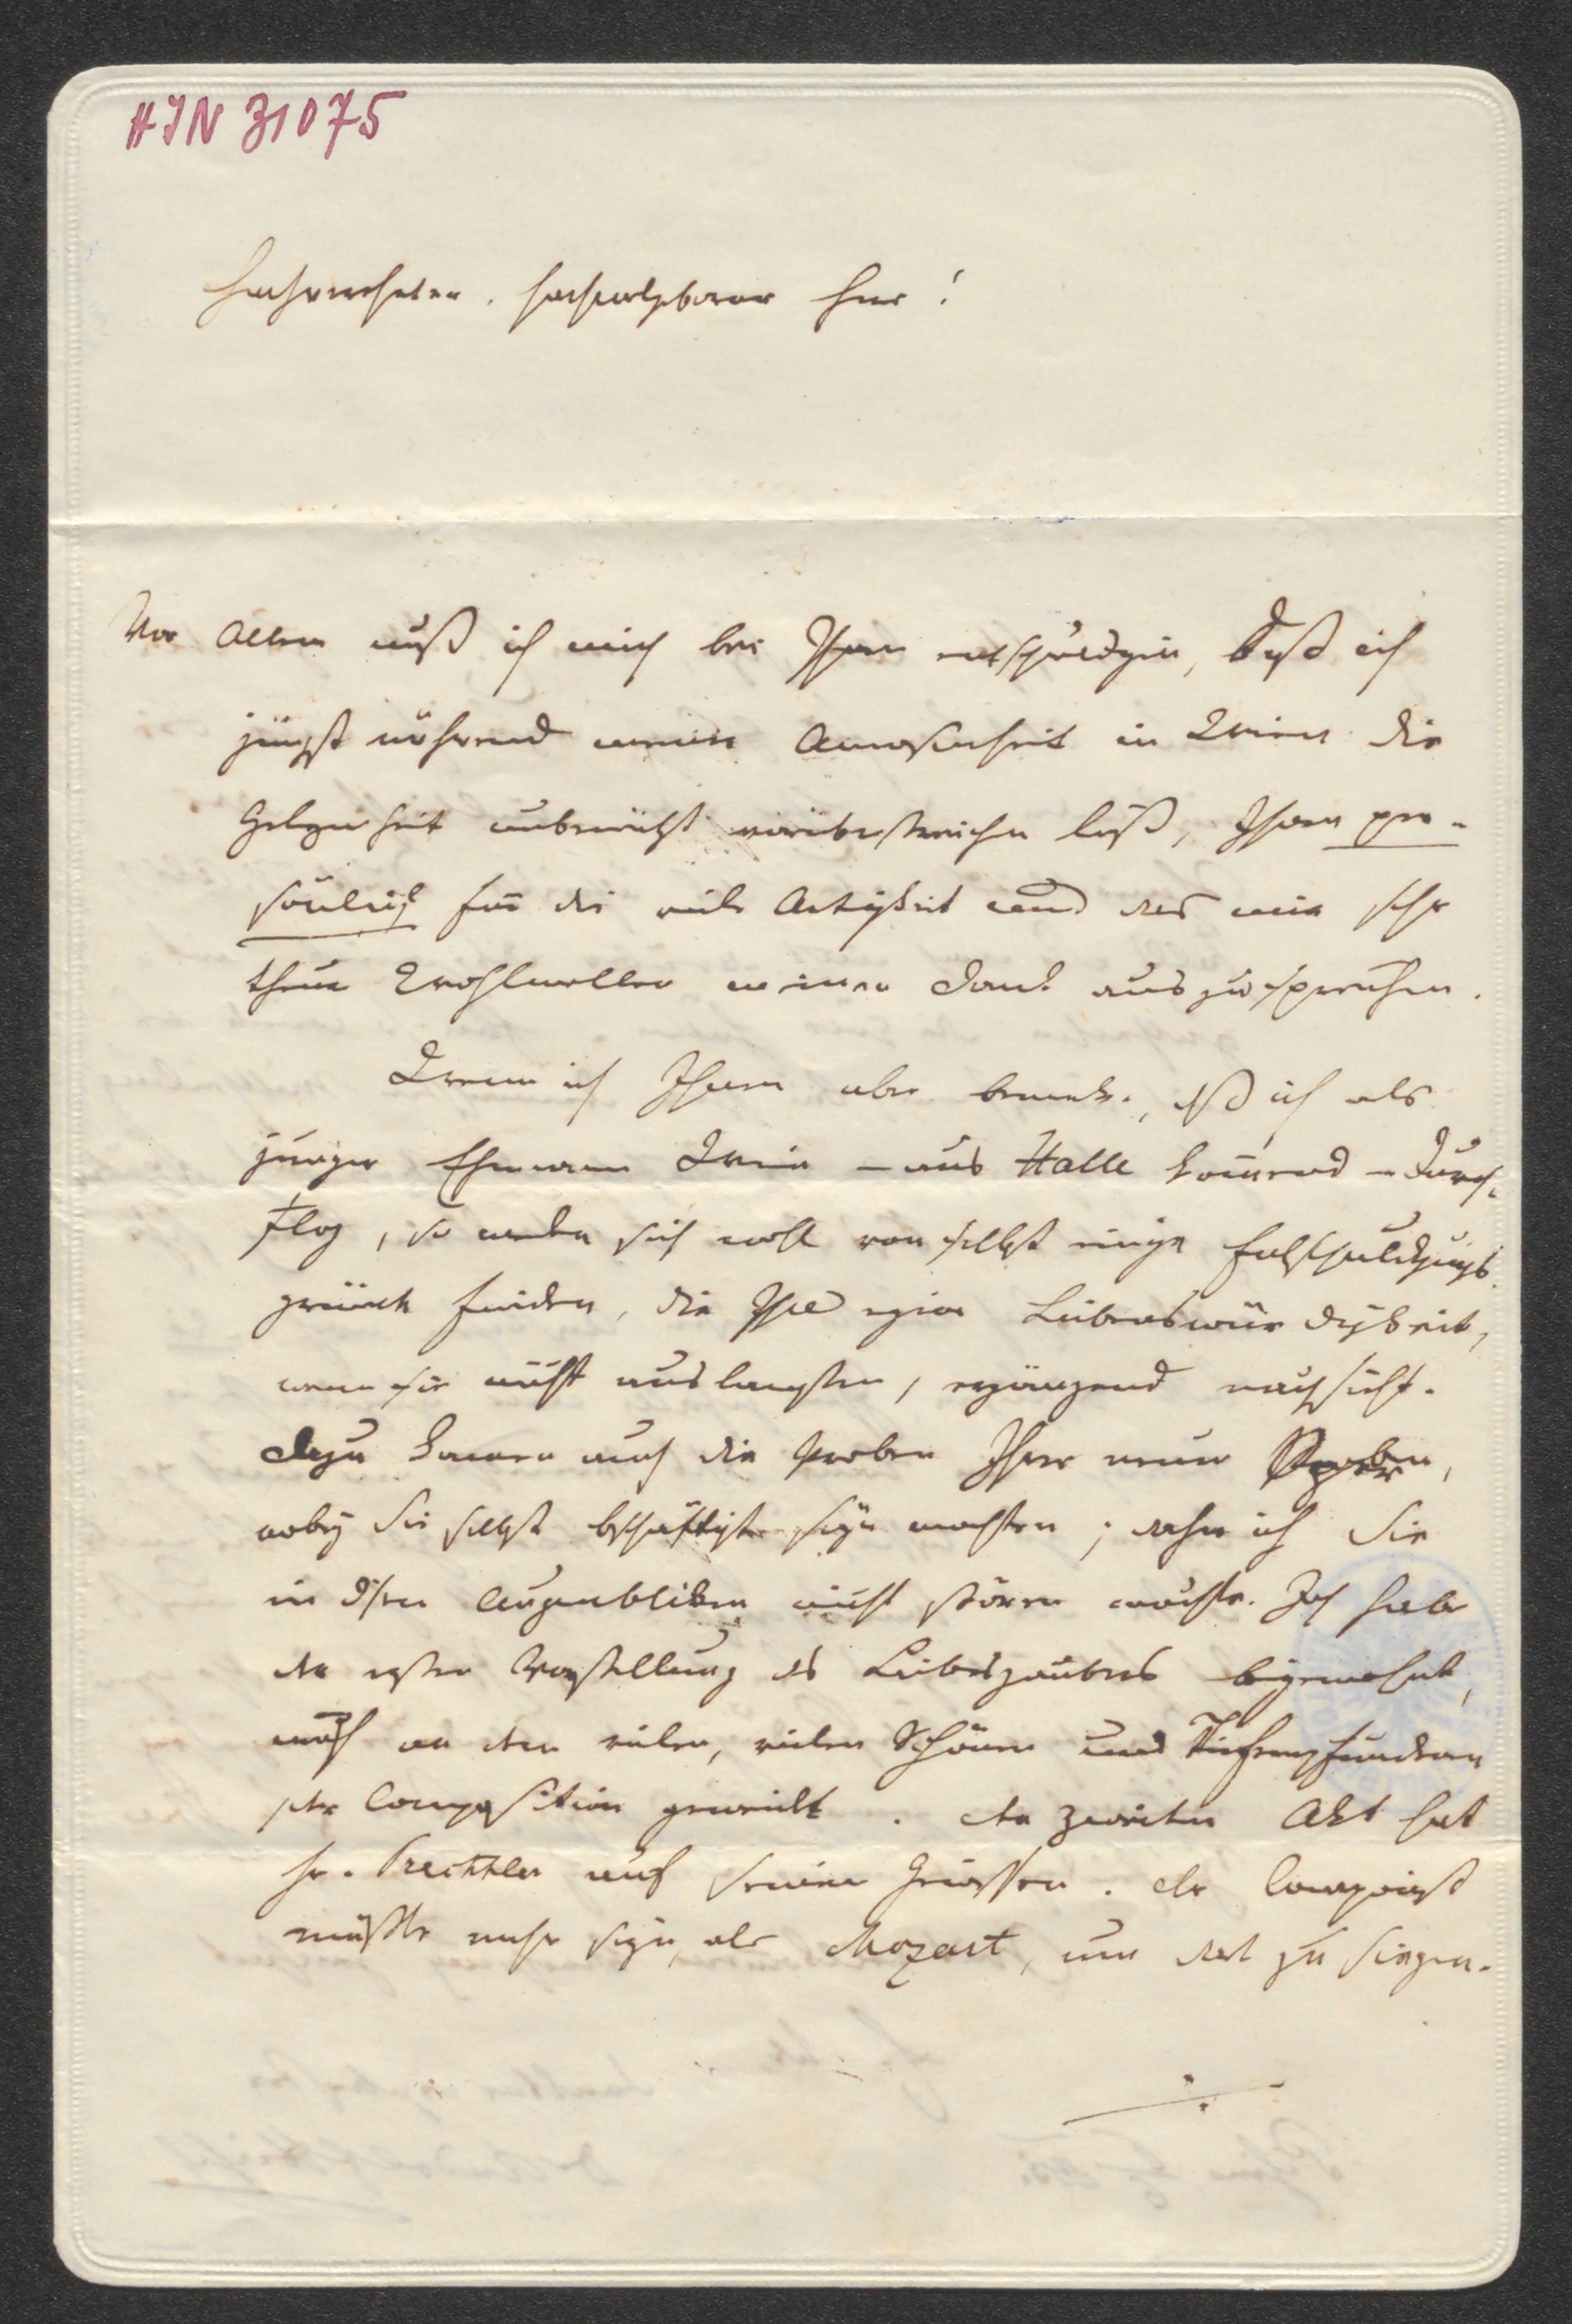 HIN 31075
Hochverehrter, hochwohlgeborner Herr!
Vor Allem muß ich mich bei Ihnen entschuldigen, daß ich
jüngst während meiner Anwesenheit in Wien die
Gelegenheit unbenützt vorüberstreichen ließ, Ihnen per-
sönlich für die viele Artigkeit und das mir sehr
theure Wohlwollen meinen Dank auszusprechen.
Wenn ich Ihnen aber bemerke, daß ich als
junger Ehemann Wien – aus Halle kommend – durch-
flog, so werden sich wohl von selbst einige Entschuldigungs
gründe finden, die Ihre eigene Liebenswürdigkeit,
wenn sie nicht auslangten, ergänzend nachsieht.
Dazu kamen auch die Proben Ihrer neuen Oper,
wobey Sie selbst beschäftigt seyn mochten; daher ich Sie
in diesen Augenblicken nicht stören mochte. Ich habe
der ersten Vorstellung des Liebeszaubers beygewohnt,
mich an den vielen, vielen Schönen und Tiefempfundenen
der Composition geweidet. Den zweiten Akt hat
Hr. Prechtler auf seinem Gewissen. Der Componist
müßte mehr seyn, als Mozart, um dort zu siegen.